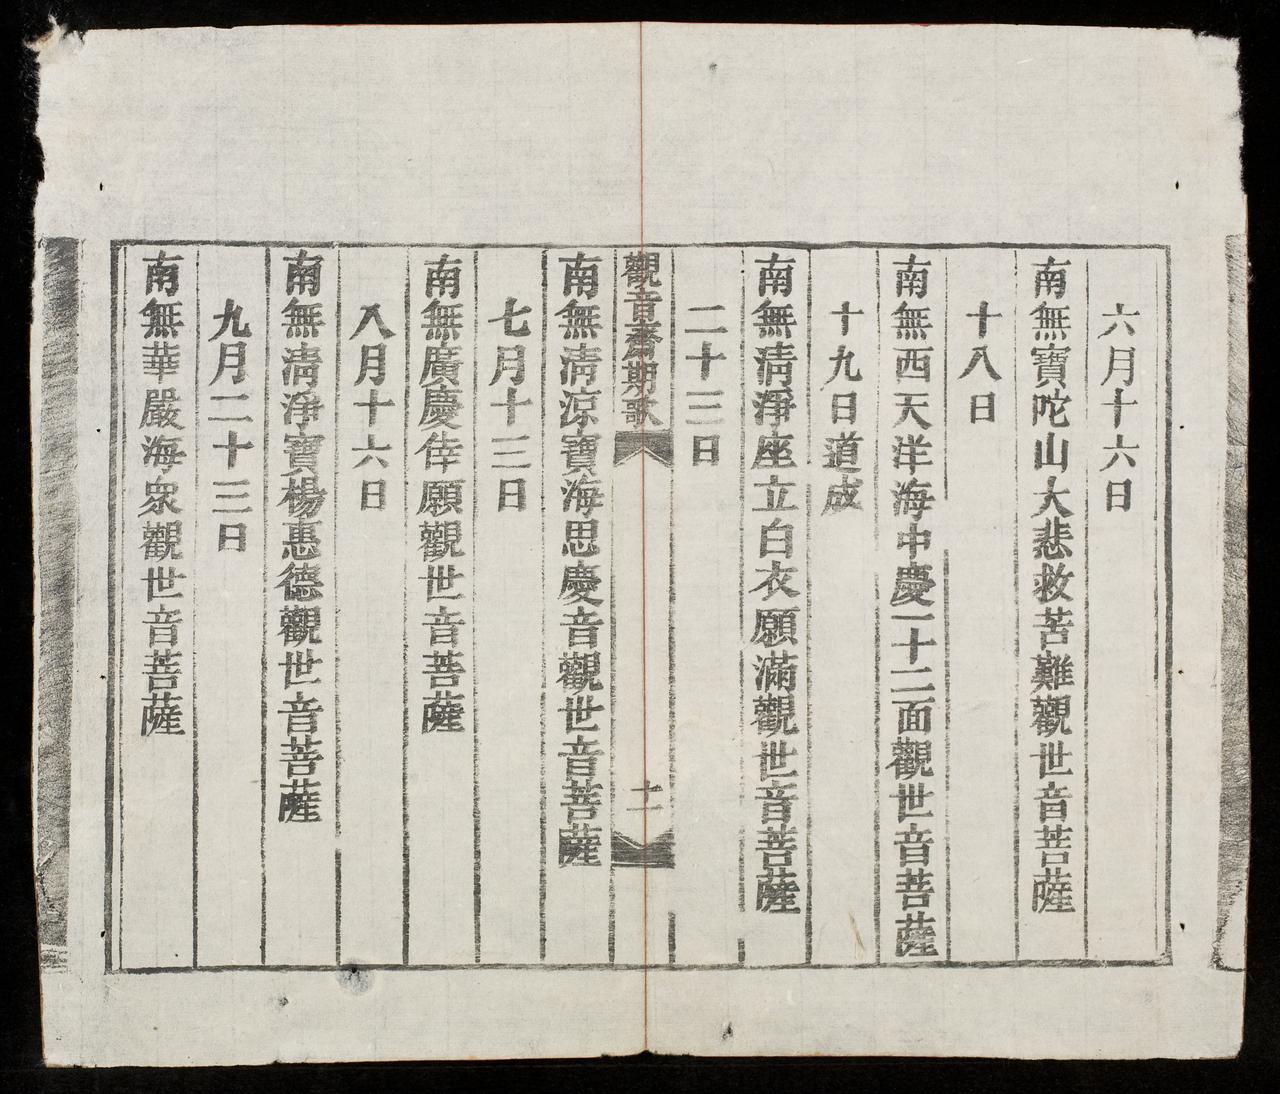 六月十六日
南無寶陀山大悲救苦難觀世音菩薩
十八日
南無西天洋海中慶一十二面觀世音菩薩
十九日道成
南無清淨座立白衣願滿觀世音菩薩
二十三日
觀音齋期歌
二
南無清涼寶海思慶音觀世音菩薩
七月十三日
南無廣慶倖願觀世音菩薩
八月十六日
南無清淨寶楊惠德觀世音菩薩
九月二十三日
南無華嚴海衆觀世音菩薩